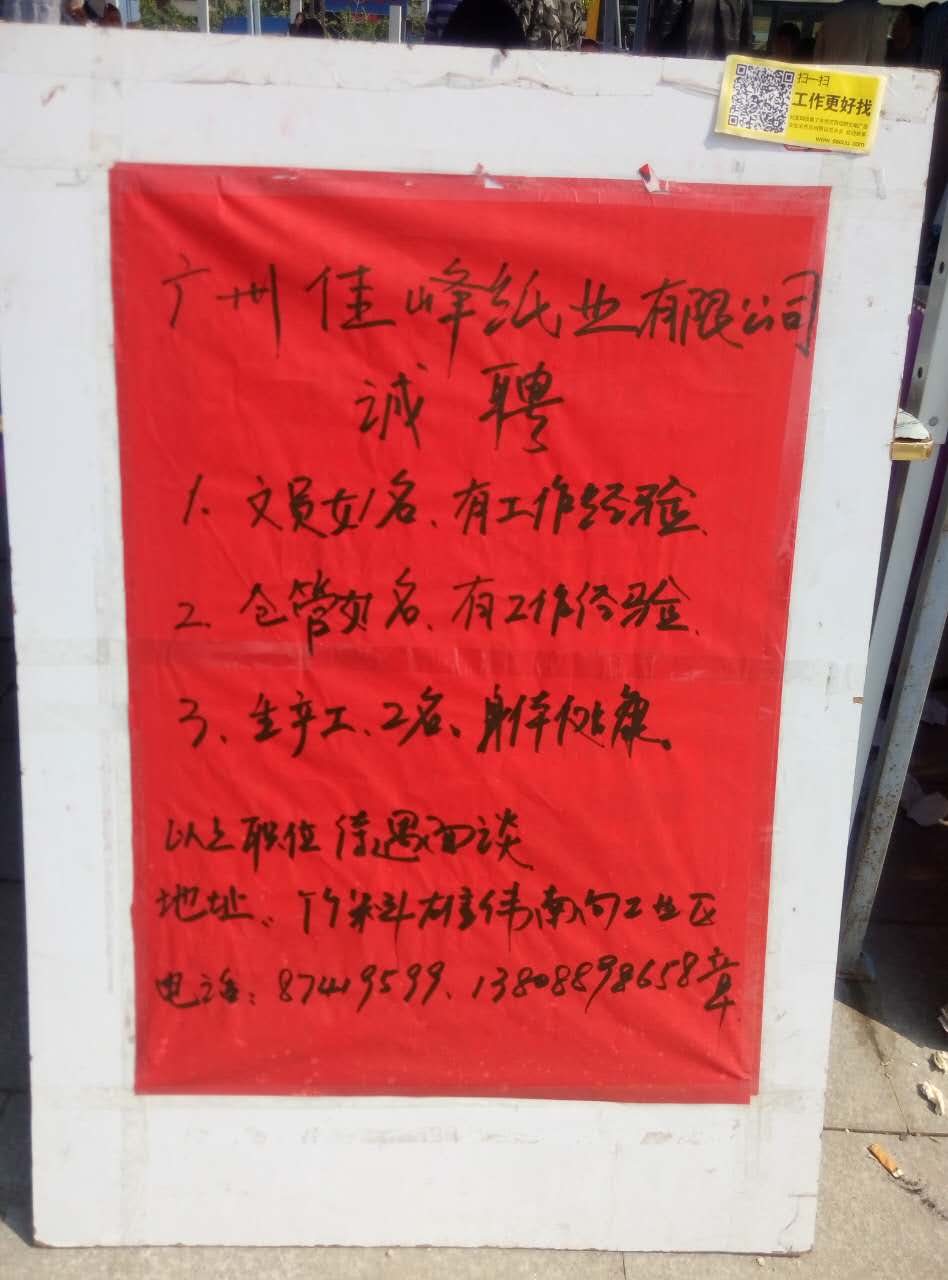 扫一扫
工作更好找
广州佳峰纸业有限公司
诚聘
1. 文员女1名、有工作经验.
2. 仓管女1名、有工作经验.
3、生产工、2名、身体健康。
以上职位待遇面谈
地址:竹料雄伟南向工业区
电话:87419599、13808898658章